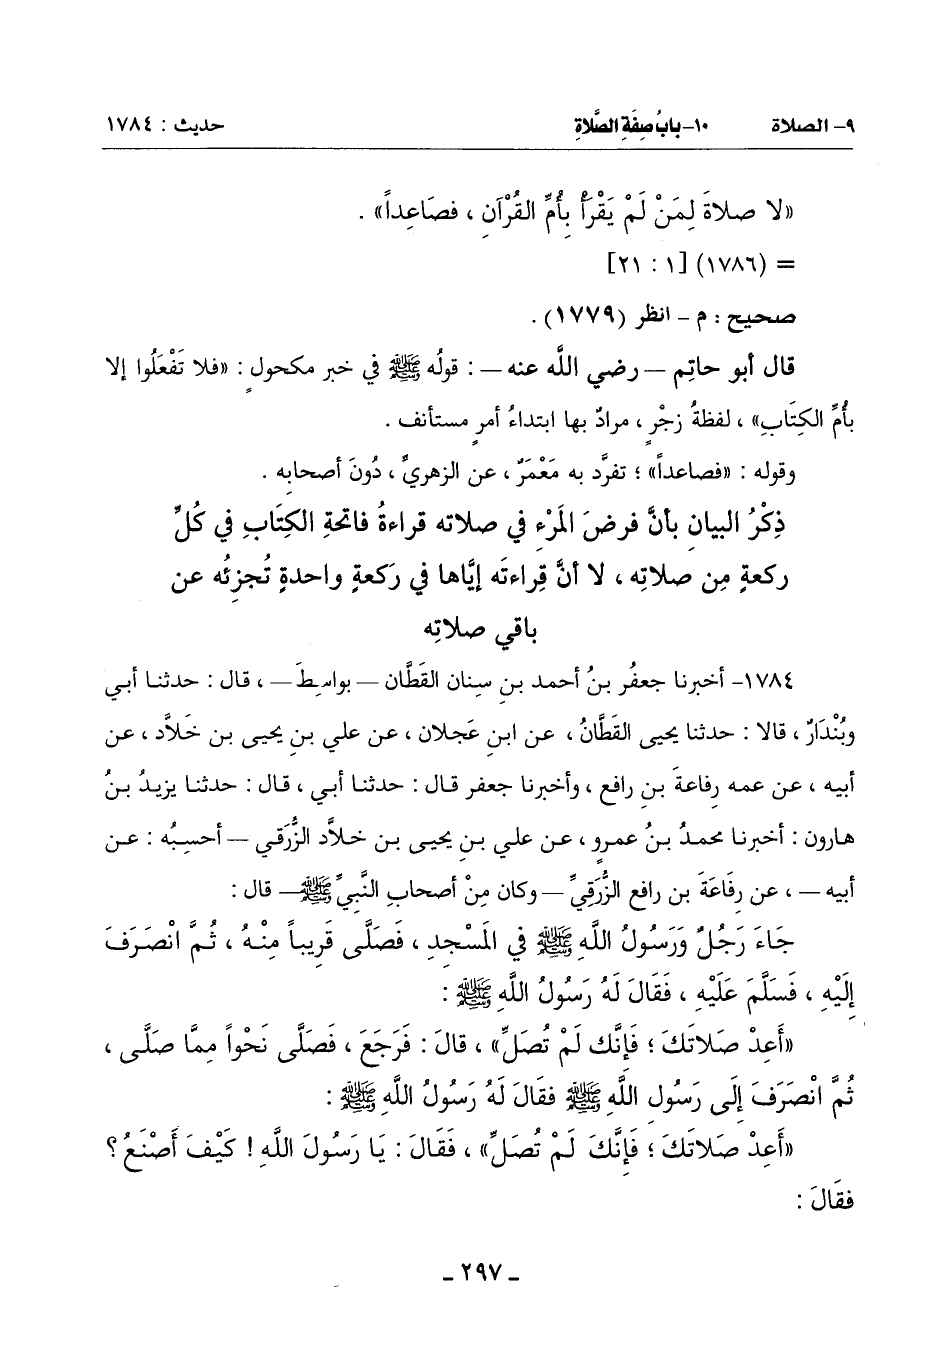 ٩- الصلاة ١٠- بابُ صِفَةِ الصَّلاةِ حديث : ١٧٨٤
«لا صلاةَ لِمَنْ لَمْ يَقْرَأْ بِأُمِّ القُرْآنِ ، فصَاعِداً» .
= (١٧٨٦) [١ : ٢١]
صحيح : م - انظر (١٧٧٩) .
قال أبو حاتِم — رضي اللَّه عنه — : قولُه ﷺ في خبر مكحول : «فلا تَفْعَلُوا إلا
بأُمِّ الكِتَابِ» ، لفظةُ زجْرٍ ، مرادٌ بها ابتداءُ أمرٍ مستأنف .
وقوله : «فصاعداً» ؛ تفرَّد به مَعْمَرٌ ، عن الزهريِّ ، دُونَ أصحابِه .
ذِكْرُ البيان بأنَّ فرضَ المَرْءِ في صلاته قراءةُ فاتحةِ الكِتَابِ في كُلِّ
ركعةٍ مِن صلاتِه ، لا أنَّ قِراءتَه إيَّاها في رَكعةٍ واحدةٍ تُجزِئُه عن
باقي صلاتِه
١٧٨٤- أخبرنا جعفُر بنُ أحمد بنِ سِنان القَطَّان — بواسِطَ — ، قال : حدثنا أبي
وبُنْدَارٌ ، قالا : حدثنا يحيى القَطَّانُ ، عن ابنِ عَجلان ، عن علي بنِ يحيى بن خَلاَّد ، عن
أبيه ، عن عمه رِفاعةَ بنِ رافع ، وأخبرنا جعفر قال : حدثنا أبي ، قال : حدثنا يزيدُ بنُ
هارون : أخبرنا محمدُ بنُ عمرٍو ، عن علي بنِ يحيى بن خلاَّد الزُّرَقي — أحسِبُه : عن
أبيه — ، عن رِفَاعَةَ بن رافع الزُّرَقِيِّ — وكان مِنْ أصحابِ النَّبيِّ ﷺ — قال :
جَاءَ رَجُلٌ وَرَسُولُ اللَّهِ ﷺ في المَسْجدِ ، فَصَلَّى قَرِيباً مِنْهُ ، ثُمَّ انْصَرَفَ
إلَيْهِ ، فَسَلَّمَ عَلَيْهِ ، فَقَالَ لَهُ رَسُولُ اللَّهِ ﷺ :
«أَعِدْ صَلاتَكَ ؛ فَإِنَّك لَمْ تُصَلِّ» ، قالَ : فَرَجَعَ ، فَصَلَّى نَحْواً مِمَّا صَلَّى ،
ثُمَّ انْصَرَفَ إلَى رَسُولِ اللَّهِ ﷺ فقَالَ لَهُ رَسُولُ اللَّهِ ﷺ :
«أَعِدْ صَلاتَكَ ؛ فَإِنَّكَ لَمْ تُصَلِّ» ، فَقَالَ : يَا رَسُولَ اللَّهِ ! كَيْفَ أَصْنَعُ ؟
فقَالَ :
- ٢٩٧ -